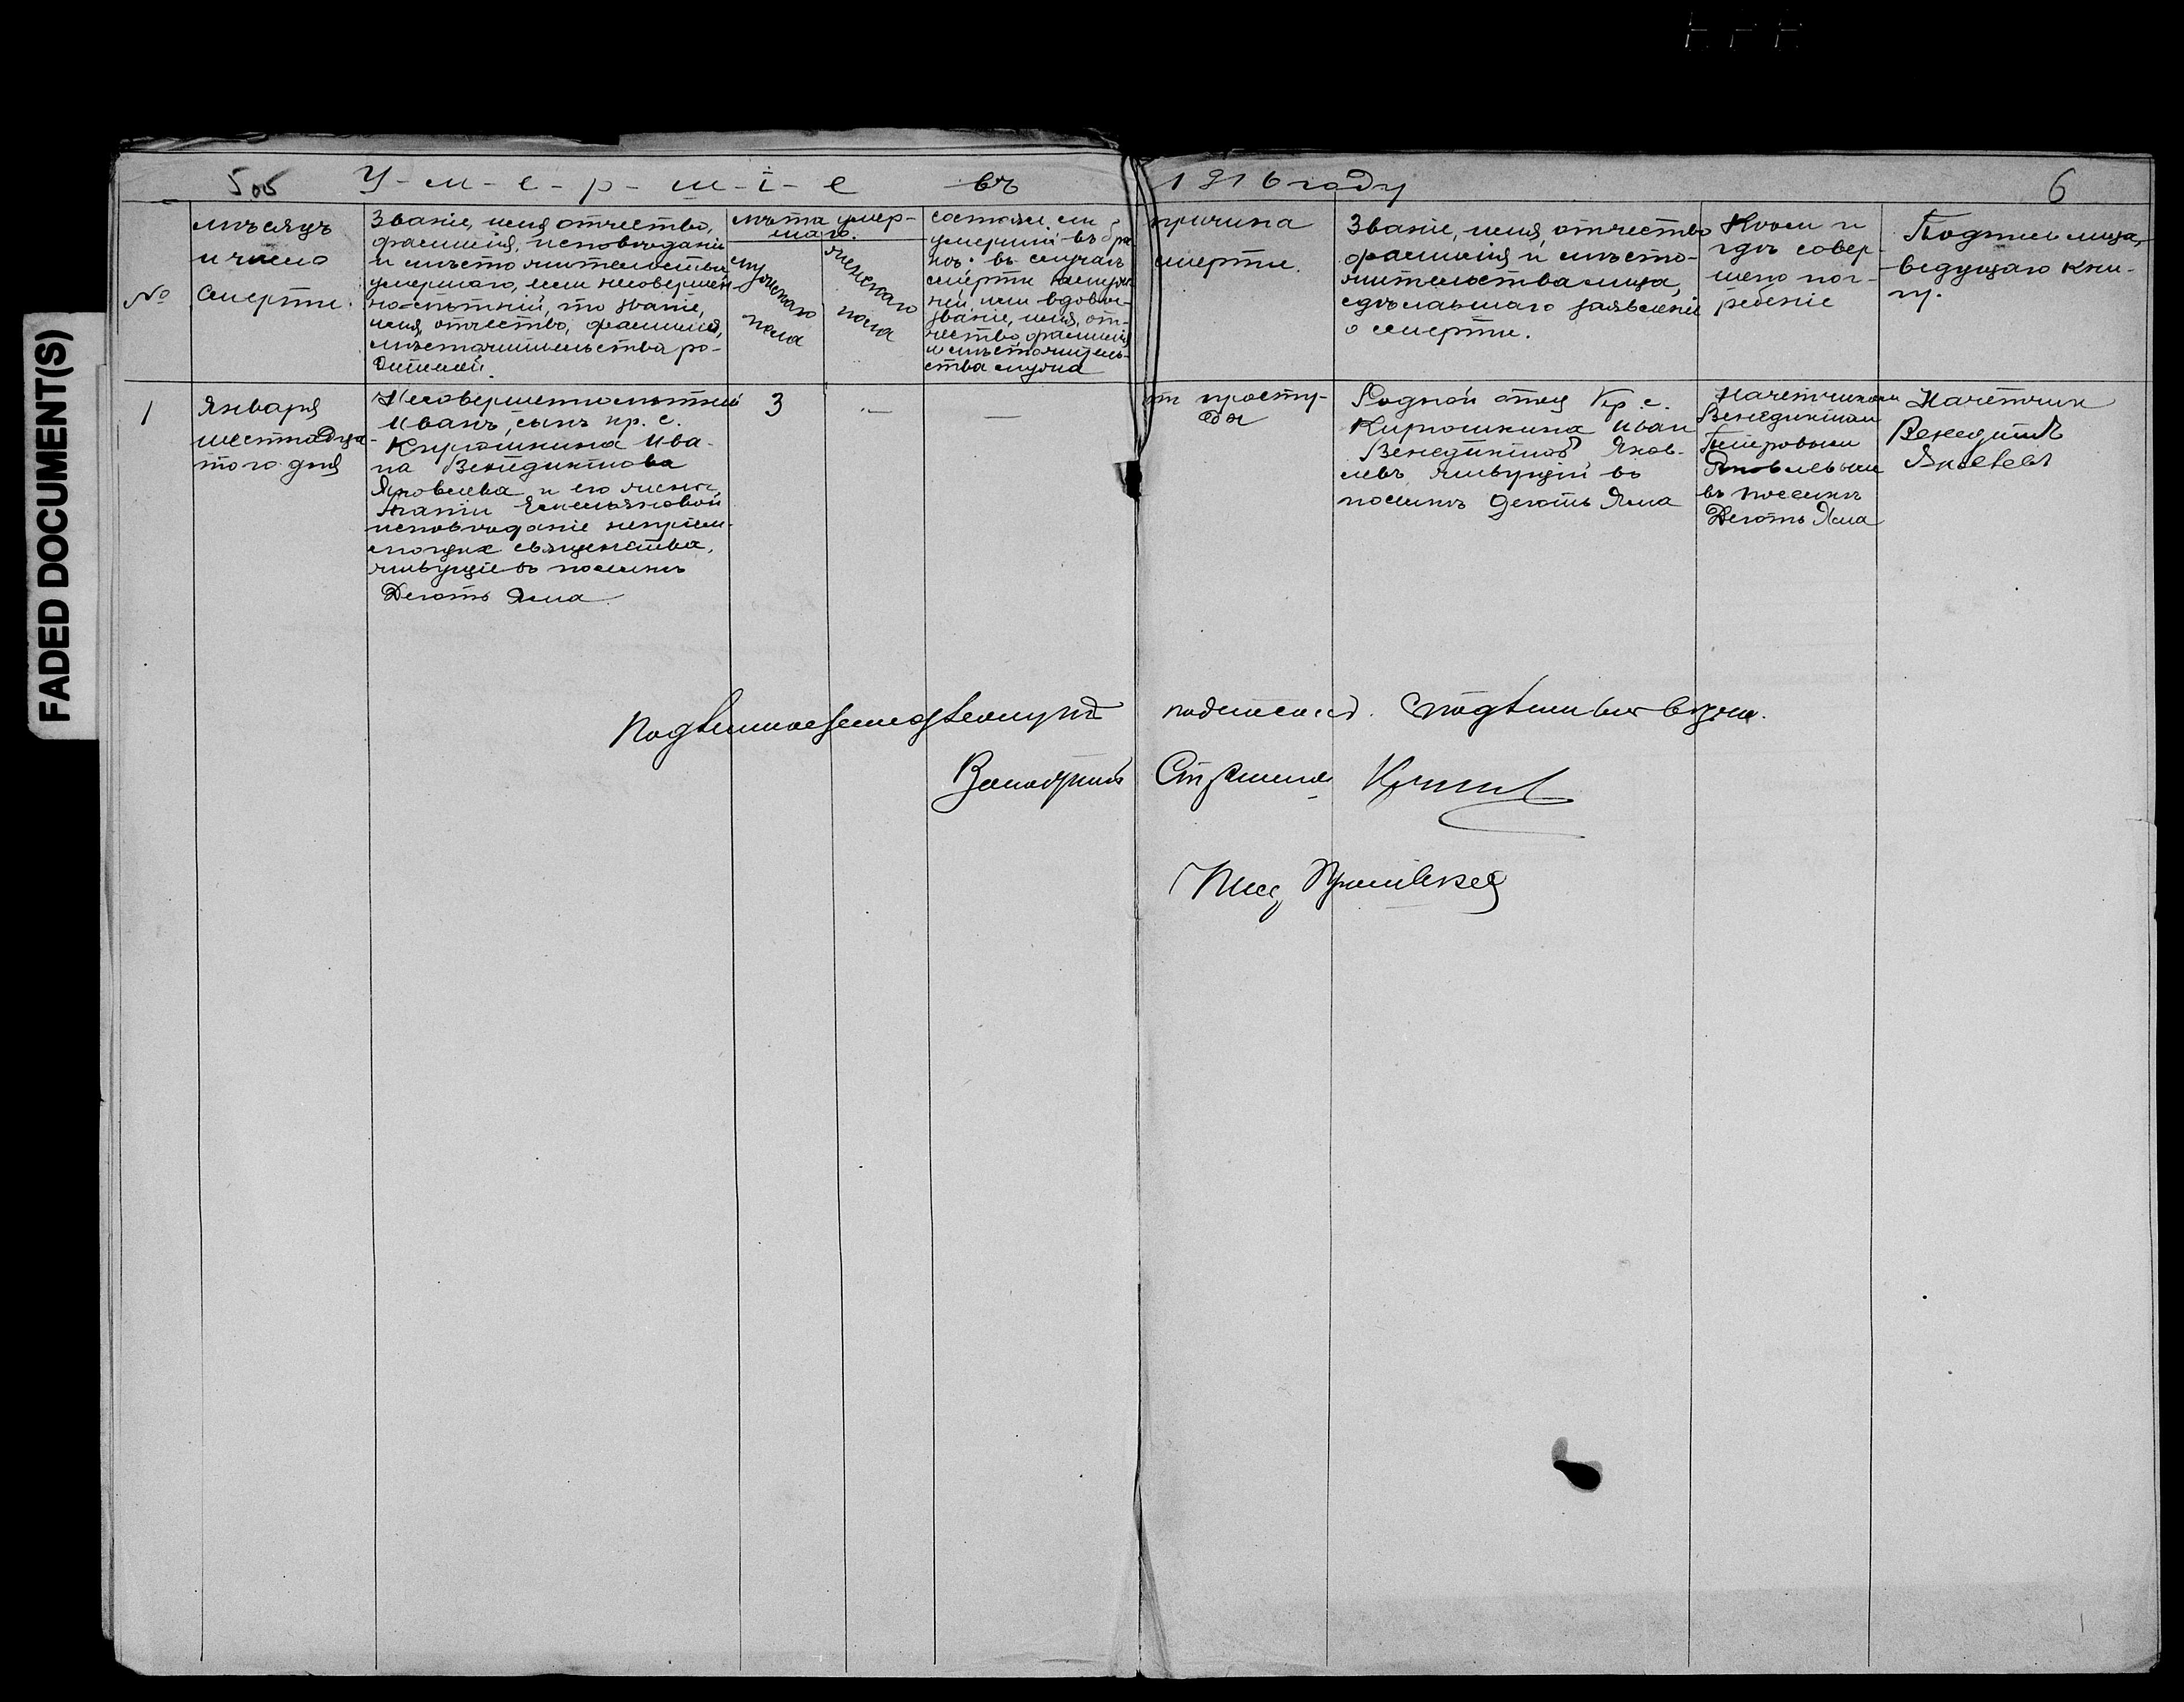 FADED DOCUMENT(S)
505 У-м-е-р-ш-і-е въ 1916 году 6
№
мѣсяцъ
и число
смерти.
Званіе, имя отчество,
фамилія, исповѣданіе
и мѣсто жительства
умершаго, если несовершен-
но-лѣтній, то званіе,
имя, отчество, фамилія,
мѣстожительства ро-
дителей.
лѣта умер-
шаго.
мужскаго
пола
женскаго
пола
состоял ли
умершій въ бра
кѣ. въ случаѣ
смерти замуж
ней или вдовы-
званіе, имя, от-
чество, фамилія
и мѣстожитель-
ства мужа
причина
смерти.
Званіе, имя, отчество
фамилія и мѣсто-
жительства лица,
сдѣлавшаго заявленіе
о смерти.
Кѣем и
гдѣ совер-
шено пог-
ребеніе
Подпись лица,
ведущаго кни-
гу.
1
Января
шестнадца-
того дня
Несовершеннолѣтній
Иванъ, сынъ кр. с.
Кирюшкина Ива-
на Венедиктова
Яковлева и его жены
Емельяновой
исповѣданіе непріем-
лющих священства,
живущіе въ поселкѣ
Деготь Яма
3
—
—
от просту-
ды
Родной отец Кр. с.
Кирюшкина Иван
Венедиктов Яков-
левъ живущій въ
поселкѣ Деготь Яма
Начетчиком
Венедиктом
Петровым
Яковлевым
въ поселкѣ
Деготь Яма
Начетчик
Венедиктъ
Яковлевъ
подписалъ. с подлинным вѣрно.
Волостной Старшина